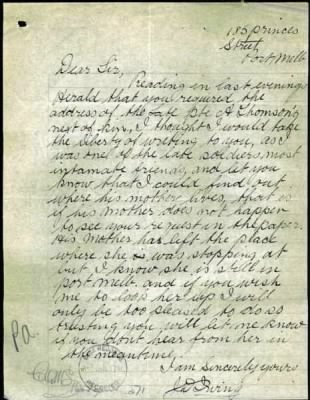 185 Princes
Street,
Port Melb
Dear Sir,
Reading in last evenings
Herald that you required the
address of the late Pte A Thomson's
next of kin, I thought I would take
the liberty of writing to you, as I
was one of the late soldiers most
intamate friends, and let you
know that I could find out
where his mother lives, that is
if his mother does not happen
to see your request in the paper.
His mother has left the place
where she was stopping at
but I know she is still in
port melb. and if you wish
me to look her up I will
only be too pleased to do so
trusting you will let me know
if you dont hear from her in
the meantime,
I am Sincerely yours
Pa